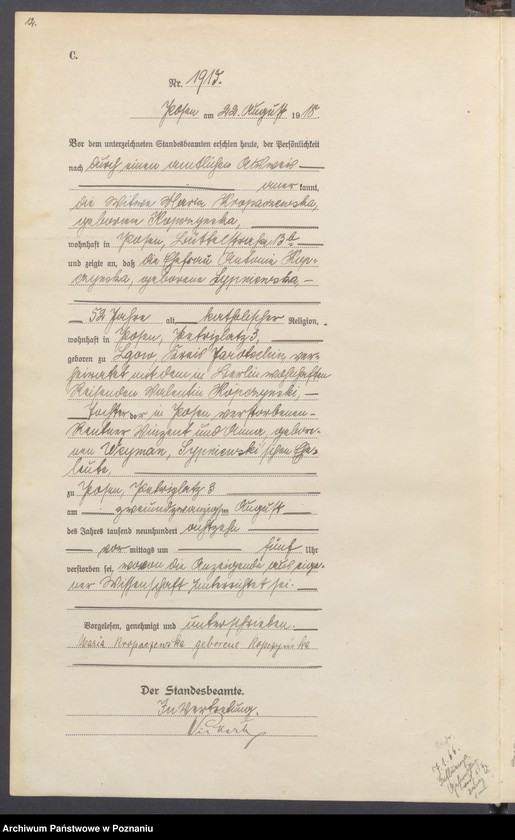 C.
Nr. 1915.
Posen am 22. August 1918.
Vor dem unterzeichneten Standesbeamten erschien heute, der Persönlichkeit
nach durch einen amtlichen Ausweis
anerkannt,
die Witwe Maria Kropaczewska,
geborene Kopczynska,
wohnhaft in Posen, Büttelstraße
und zeigte an, daß die Ehefrau Antonie Kop-
czynska, geborene Sypniewska,
52 Jahre alt, katholischer Religion,
wohnhaft in Posen, Petriplatz 3,
geboren zu Kreis Jarotschin, ver-
heiratet mit dem in Berlin wohnhaften
Reisenden Valentin Kopczynski,
Tochter der in Posen verstorbenen
Rentner Vinzent und Anna, gebore-
nen Sypniewski'schen Ehe-
leute,
zu Posen, Petriplatz 3
am zweiundzwanzigsten August
des Jahres tausend neunhundert achtzehn
vormittags um fünf Uhr
verstorben sei, wovon die Anzeigende aus eige-
ner Wissenschaft unterrichtet sei.
Vorgelesen, genehmigt und unterschrieben.
Maria Kropaczewska geborene Kopczyńska
Der Standesbeamte.
In Vertretung.
Archiwum Państwowe w Poznaniu